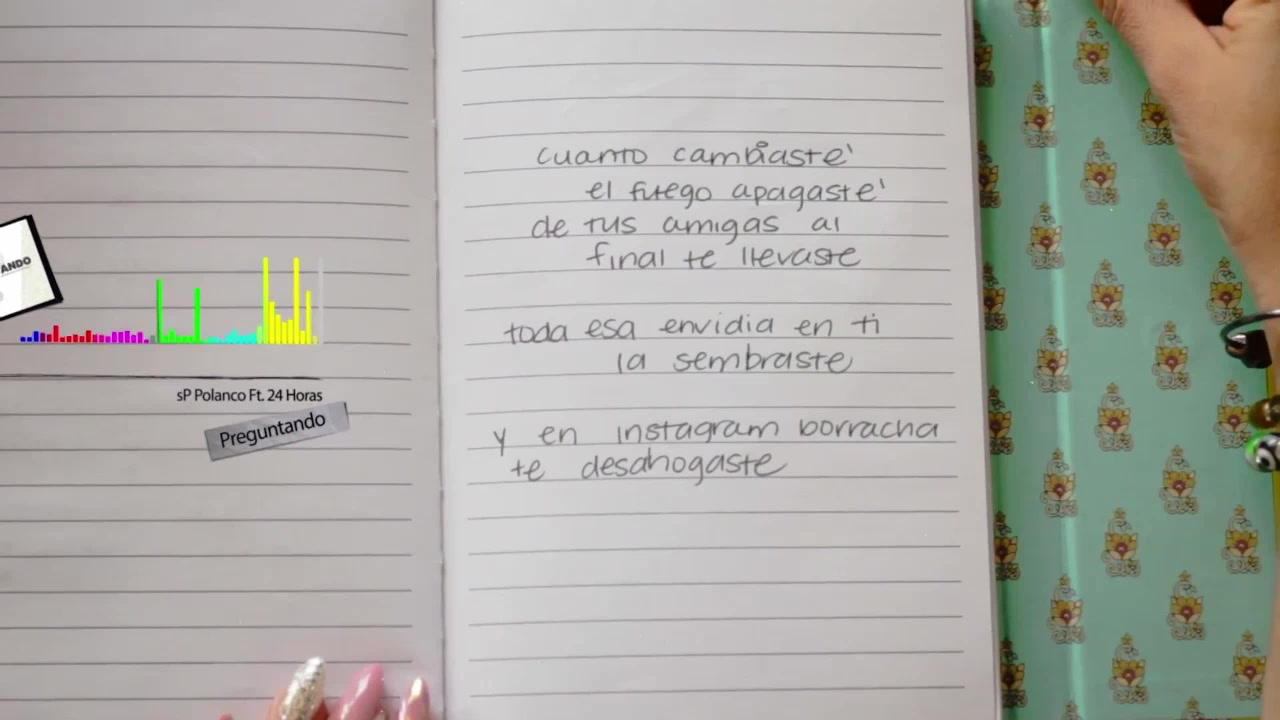 ANDO
sP Polanco Ft. 24 Horas
Preguntando
cuanto cambiaste'
el fuego apagaste'
de tus amigas al
final te llevaste
toda esa envidia en ti
la sembraste
y en instagram borracha
te desahogaste